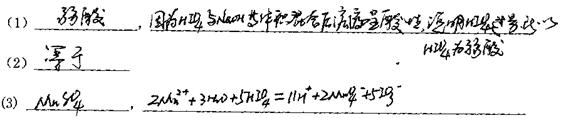 (1) 弱酸 , 因为HIO₄与NaOH等体积混合后溶液呈酸性,说明HIO₄过量,所以
HIO₄为弱酸
(2) 等于
(3) MnSO₄ , 2Mn²⁺+3H₂O+5HIO₄=11H⁺+2MnO₄⁻+5IO₃⁻